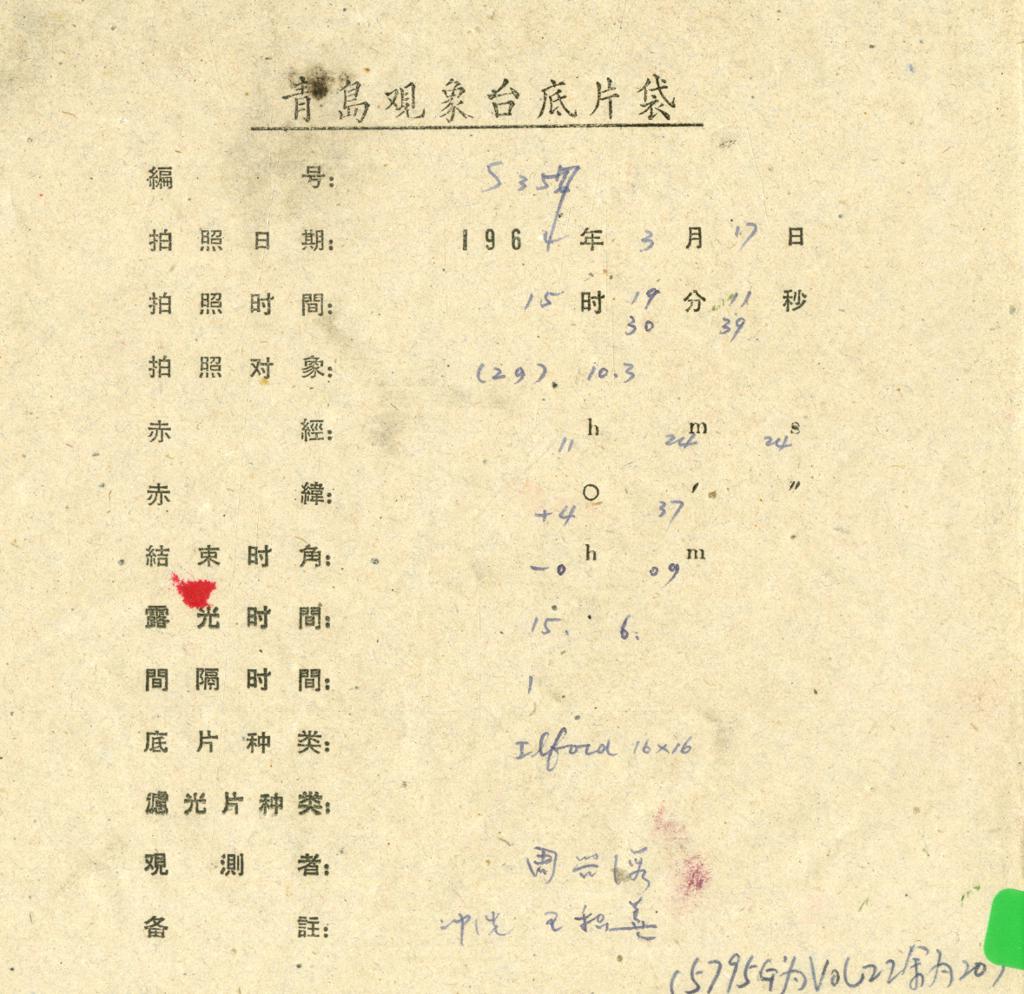 青島观象台底片袋
編 号: S 357
拍照日期: 1964年3月17日
拍照时間: 15时19分11秒
30 39
拍照对象: (29) 10.3
赤 經: 11h 24m 24s
赤 緯: +4° 37′ ″
結束时角: -0h 09m
露光时間: 15. 6.
間隔时間: 1
底片种类: Ilford 16×16
濾光片种类:
观測者: 周
备 註: 冲洗 王
(5795G为Vol22余为20)